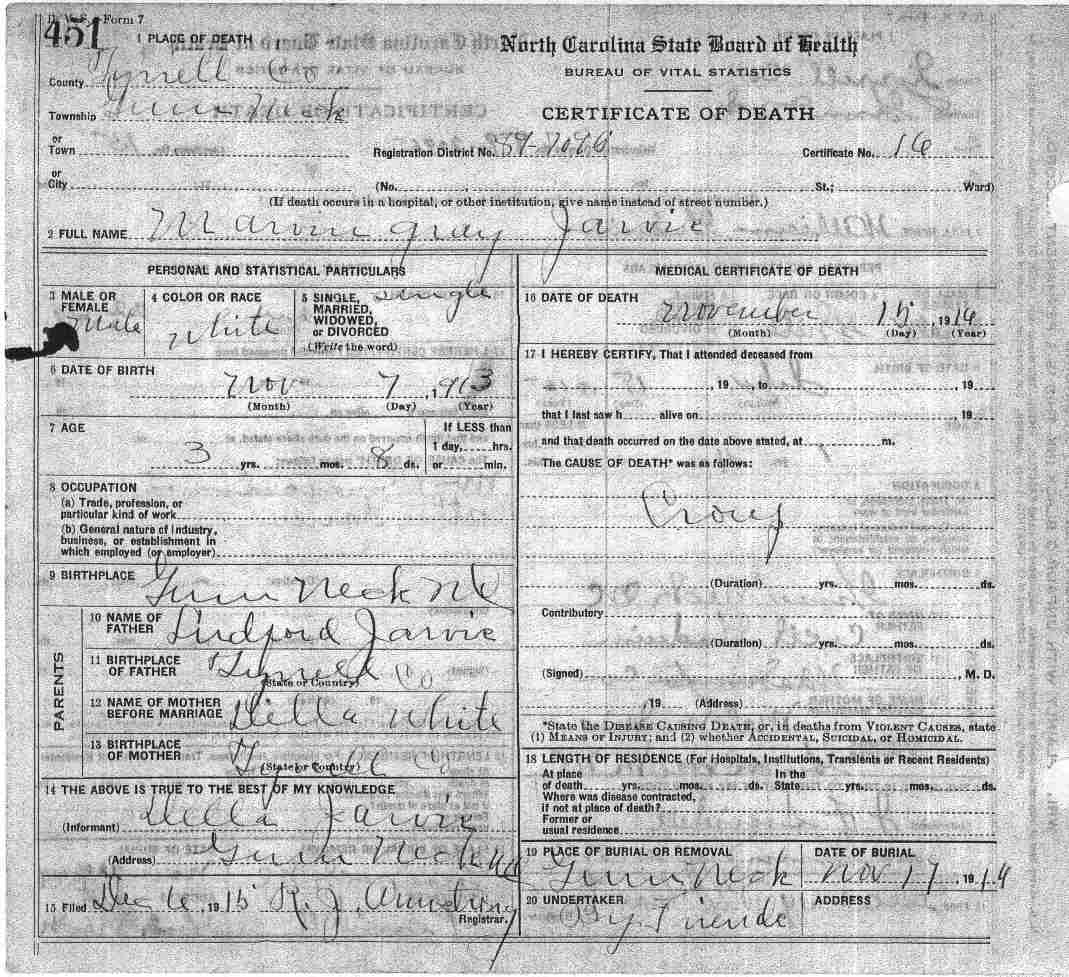 D. V. S.—Form 7
451
1 PLACE OF DEATH
County Tyrrell Co
Township Gum Neck
or Town
or City
North Carolina State Board of Health
BUREAU OF VITAL STATISTICS
CERTIFICATE OF DEATH
Registration District No. 89-7080 Certificate No. 16
(No. , St.; Ward)
(If death occurs in a hospital, or other institution, give name instead of street number.)
2 FULL NAME Marvin gray Jarvis
PERSONAL AND STATISTICAL PARTICULARS
3 MALE OR FEMALE Male
4 COLOR OR RACE White
5 SINGLE, MARRIED, WIDOWED, or DIVORCED (Write the word) Single
6 DATE OF BIRTH
Nov 7, 1913
(Month) (Day) (Year)
7 AGE
3 yrs. mos. 8 ds.
If LESS than 1 day, hrs. or min.
8 OCCUPATION
(a) Trade, profession, or particular kind of work
(b) General nature of industry, business, or establishment in which employed (or employer)
9 BIRTHPLACE Gum Neck NC
PARENTS
10 NAME OF FATHER Ludford Jarvis
11 BIRTHPLACE OF FATHER Tyrrell Co
(State or Country)
12 NAME OF MOTHER BEFORE MARRIAGE Della White
13 BIRTHPLACE OF MOTHER Tyrrell Co
(State or Country)
14 THE ABOVE IS TRUE TO THE BEST OF MY KNOWLEDGE
(Informant) Della Jarvis
(Address) Gum Neck NC
15 Filed Dec 6, 1915 R. J. Armstrong
Registrar.
MEDICAL CERTIFICATE OF DEATH
16 DATE OF DEATH
November 15, 1916
(Month) (Day) (Year)
17 I HEREBY CERTIFY, That I attended deceased from
, 19 to , 19
that I last saw h alive on , 19
and that death occurred on the date above stated, at m.
The CAUSE OF DEATH* was as follows:
Croup
(Duration) yrs. mos. ds.
Contributory
(Duration) yrs. mos. ds.
(Signed) , M. D.
, 19 (Address)
*State the DISEASE CAUSING DEATH, or, in deaths from VIOLENT CAUSES, state
(1) MEANS OF INJURY; and (2) whether ACCIDENTAL, SUICIDAL, OR HOMICIDAL.
18 LENGTH OF RESIDENCE (For Hospitals, Institutions, Transients or Recent Residents)
At place of death yrs. mos. ds. In the State yrs. mos. ds.
Where was disease contracted, if not at place of death?
Former or usual residence
19 PLACE OF BURIAL OR REMOVAL Gum Neck
DATE OF BURIAL Nov 17, 1916
20 UNDERTAKER By Friends
ADDRESS